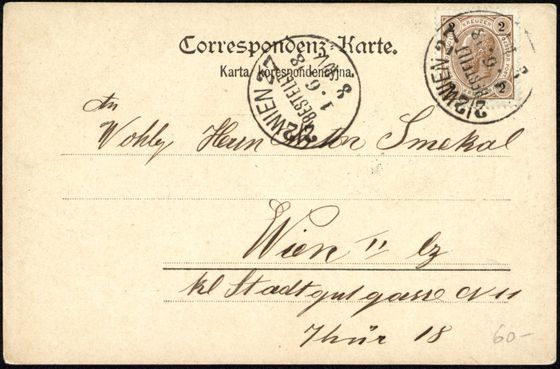 Correspondenz-Karte.
Karta korespondencyjna.
2 KREUZER 2
2/2 WIEN 27
BESTELLT
1. 6. 8
2/2 WIEN 27
BESTELLT
An
Wohlg Herrn Anton Smekal
Wien II bz
kl Stadtgutgasse No 11
Thür 18
60-